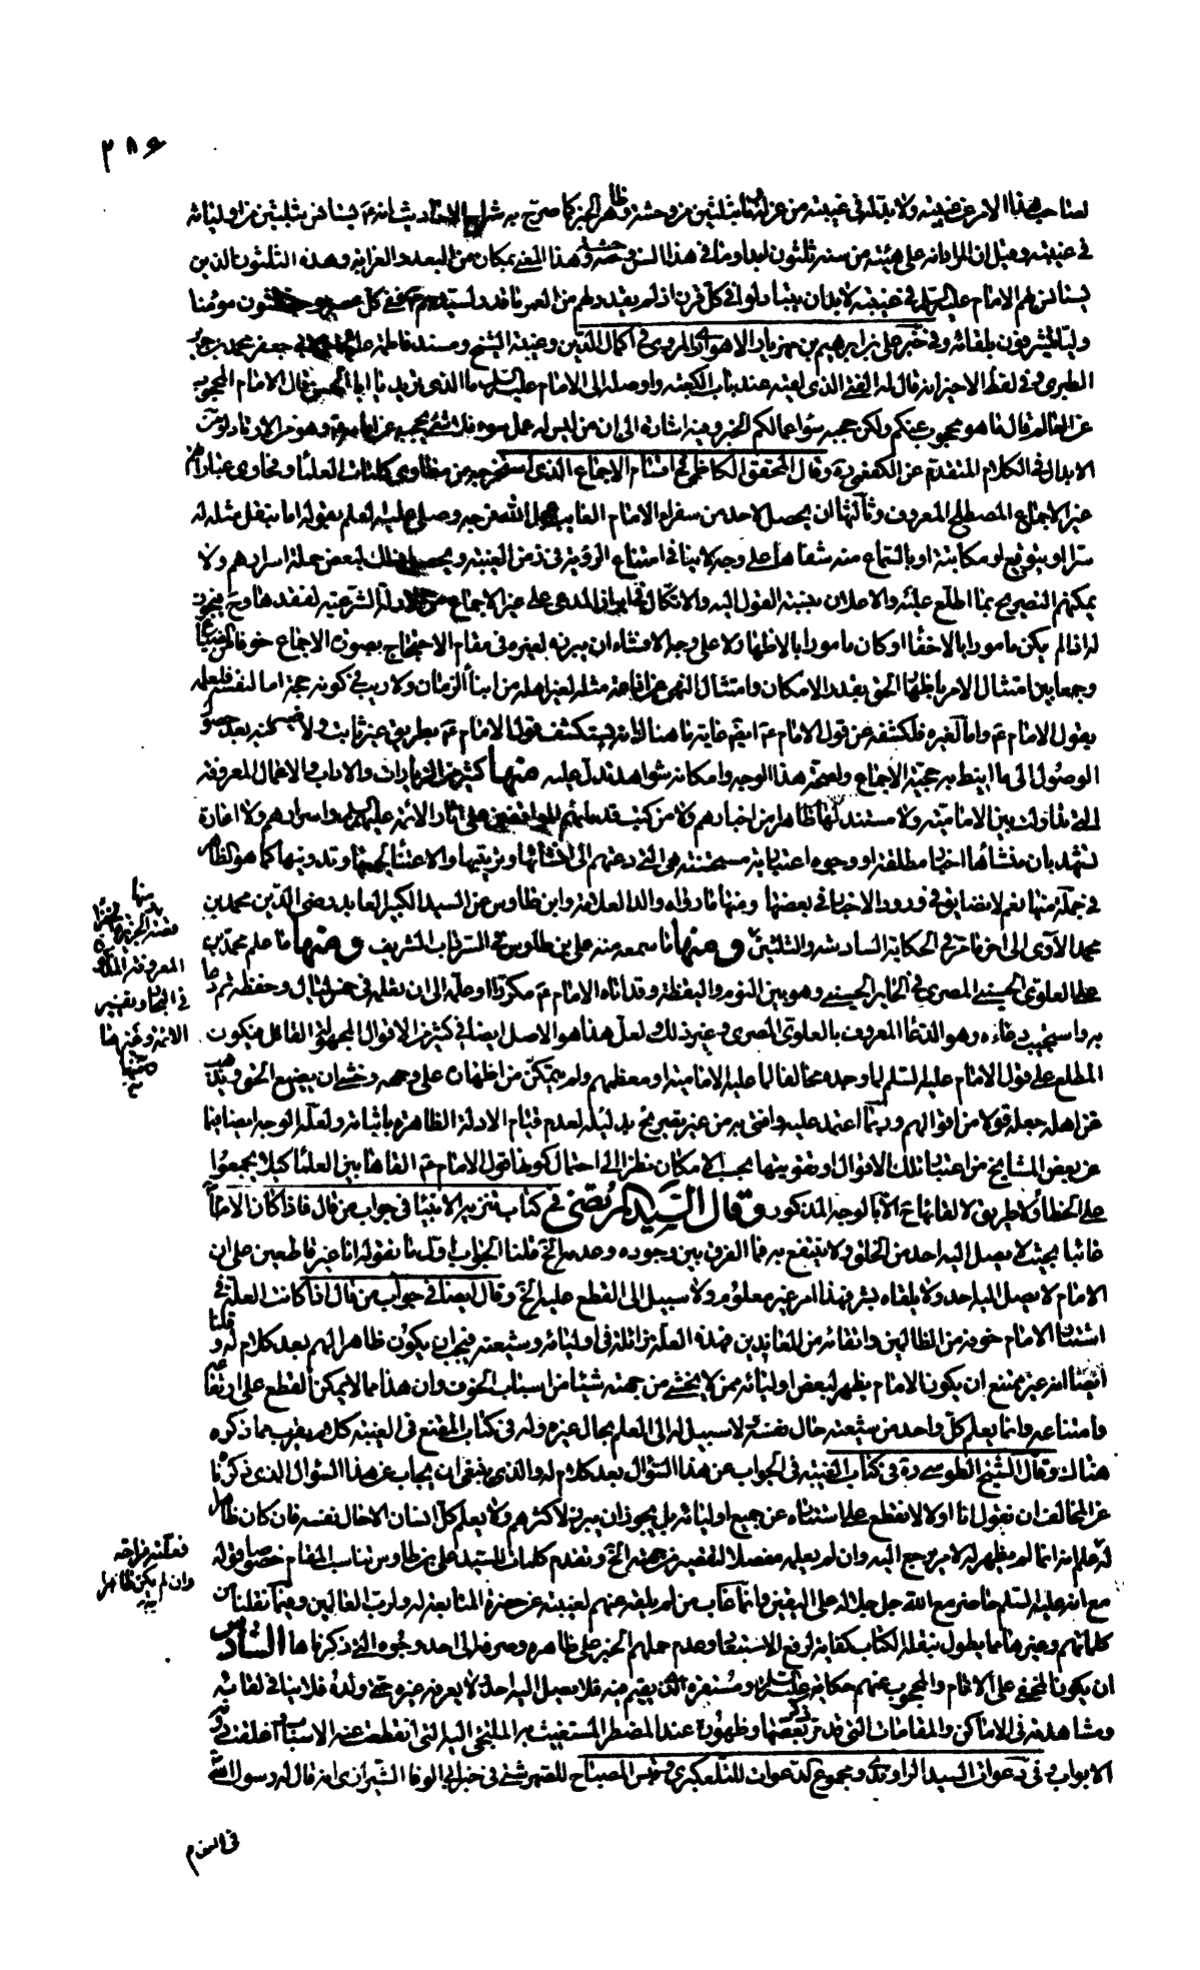 ٢٨٦
لصاحب هذا الامر من غيبته ولا بد له في غيبته من عزلة وما بثلثين من وحشة وظاهر الخبر كما صرح به شراح الاحاديث انه ع يستانس بثلثين من اوليائه
في غيبته وقيل ان المراد انه على هيئة من سنه ثلثون ابدا وما في هذا السن وحشة وهذا المعنى بمكان من البعد والغرابة وهذه الثلثون الذين
يستانس بهم الامام عليه السلام في غيبته لابد ان يتبادلوا في كل قرن اذ لم يقدر لهم من العمر ما قدر لسيدهم ع ففي كل عصر يوجد ثلثون مؤمنا
وليا يتشرفون بلقائه وفي خبر علي بن ابراهيم بن مهزيار الاهوازي المروي في اكمال الدين وغيبة الشيخ ومسند فاطمة عليها السلام لابي جعفر محمد بن جرير
الطبري وفي لفظ الاخير انه قال له الفتى الذي لقيه عند باب الكعبة واوصله الى الامام عليه السلام ما الذي تريد يا ابا الحسن قال الامام المحجوب
عن العالم قال ما هو محجوب عنكم ولكن حجبه سوء اعمالكم الخبر وفيه اشارة الى ان من ليس له عمل سوء فلا شيء يحجبه عن امامه ع وهو من الاوتاد او من
الابدال في الكلام المتقدم عن الكفعمي ره وقال المحقق الكاظمي في اقسام الاجماع الذي استخرجه من مطاوي كلمات العلماء وفحاوي عباراتهم
غير الاجماع المصطلح المعروف وثالثها ان يحصل لاحد من سفراء الامام الغائب عجل الله فرجه وصلى عليه العلم بقوله اما بنقل مثله له
سرا او بتوقيع او مكاتبة او بالسماع منه شفاها على وجه لا ينافي امتناع الرؤية في زمن الغيبة ويحصل ذلك لبعض حملة اسرارهم ولا
يمكنهم التصريح بما اطلع عليه والاعلان بنسبة القول اليه والاتكال في ابراز المدعى على غير الاجماع من الادلة الشرعية لفقدها وح فيجوز
له اذا لم يكن مامورا بالاخفاء او كان مامورا بالاظهار لا على وجه الافشاء ان يبرزه لغيره في مقام الاحتجاج بصورة الاجماع خوفا من الضياع
وجمعا بين امتثال الامر باظهار الحق بقدر الامكان وامتثال النهي عن اذاعة مثله لغير اهله من ابناء الزمان ولا ريب في كونه حجة اما لنفسه فلعلمه
بقول الامام ع واما لغيره فلكشفه عن قول الامام ع ايضا غاية ما هناك انه يستكشف قول الامام ع بطريق غير ثابت ولا ضير فيه بعد حصول
الوصول الى ما انيط به حجية الاجماع ولصحة هذا الوجه وامكانه شواهد تدل عليه منها كثير من الزيارات والاداب والاعمال المعروفة
التي تداولت بين الامامية ولا مستند لها ظاهرا من اخبارهم ولا من كتب قدمائهم الواقفين على اثار الائمة عليهم السلام واسرارهم ولا امارة
تشهد بان منشاها اخبار مطلقة او وجوه اعتبارية مستحسنة هي التي دعتهم الى انشائها وترتيبها والاعتناء بجمعها وتدوينها كما هو الظاهر
في جملة منها نعم لا نضايق في ورود الاخبار في بعضها ومنها ما رواه والد العلامة وابن طاوس عن السيد الكبير العابد رضي الدين محمد بن
محمد الآوي الى اخر ما مر في الحكاية السادسة والثلثين ومنها ما سمعه منه علي بن طاوس في السرداب الشريف ومنها ما علم محمد بن
علي العلوي الحسيني المصري في الحاير الحسيني وهو بين النوم واليقظة وقد اتاه الامام ع مكررا وعلمه الى ان تعلمه في خمس ليال وحفظه ثم دعا
به واستجيب دعاءه وهو الدعاء المعروف بالعلوي المصري وغير ذلك ولعل هذا هو الاصل ايضا في كثير من الاقوال المجهولة القائل فيكون
المطلع على قول الامام عليه السلم لما وجده مخالفا لما عليه الامامية او معظمهم ولم يتمكن من اظهاره على وجهه وخشي ان يضيع الحق ويذهب
عن اهله جعله قولا من اقوالهم وربما اعتمد عليه وافتى به من غير تصريح بدليله لعدم قيام الادلة الظاهرة باثباته ولعله الوجه ايضا فيما
عن بعض المشايخ من اعتبار تلك الاقوال او تقويتها بحسب الامكان نظرا الى احتمال كونها قول الامام ع القاها بين العلماء كيلا يجمعوا
على الخطاء ولا طريق لالقائها ح الا بالوجه المذكور وقال السيد المرتضى في كتاب تنزيه الانبياء في جواب من قال فاذا كان الامام
غائبا بحيث لا يصل اليه احد من الخلق ولا ينتفع به فما الفرق بين وجوده وعدمه الخ قلنا الجواب اول ما نقوله انا غير قاطعين على ان
الامام لا يصل اليه احد ولا يلقاه بشر فهذا امر غير معلوم ولا سبيل الى القطع عليه الخ وقال ايضا في جواب من قال اذا كانت العلة في
استتار الامام خوفه من الظالمين واتقائه من المعاندين فهذه العلة زائلة في اوليائه وشيعته فيجب ان يكون ظاهرا لهم بعد كلام له وقلنا
ايضا انه غير ممتنع ان يكون الامام يظهر لبعض اوليائه ممن لا يخشى من جهته شيئا من اسباب الخوف وان هذا مما لا يمكن القطع على ارتفاعه
وامتناعه وانما يعلم كل واحد من شيعته حال نفسه ولا سبيل له الى العلم بحال غيره وله في كتاب المقنع في الغيبة كلام يقرب مما ذكره
هناك وقال الشيخ الطوسي ره في كتاب الغيبة في الجواب عن هذا السؤال بعد كلام له والذي ينبغي ان يجاب عن هذا السؤال الذي ذكرناه
عن المخالف ان نقول انا اولا لا نقطع على استتاره عن جميع اوليائه بل يجوز ان يبرز لاكثرهم ولا يعلم كل انسان الا حال نفسه فان كان ظاهرا
له فعلته مزاحة وان لم يكن ظاهرا علم انه انما لم يظهر له لامر يرجع اليه وان لم يعلمه مفصلا لتقصير من جهته الخ وتقدم كلمات للسيد علي بن طاوس تناسب المقام خصوصا قوله
مع انه عليه السلم حاضر مع الله جل جلاله على اليقين وانما غاب من لم يلقه عنهم لغيبته عن حضرة المتابعة له ولرب العالمين وفيما نقلنا من
كلماتهم وغيرها مما يطول بنقله الكتاب كفاية لرفع الاستبعاد وعدم حملهم الخبر على ظاهره وصرفه الى احد وجوه التي ذكرناها السادس
ان يكون المخفي على الانام والمحجوب عنهم مكانه عليه السلم ومستقره الذي يقيم فيه فلا يصل اليه احد ولا يعرفه غيره حتى ولده فلا ينافي لقائه
ومشاهدته في الاماكن والمقامات التي قد مر ذكر بعضها وظهوره عند المضطر المستغيث به الملتجي اليه التي انقطعت عنه الاسباب واغلقت دونه
الابواب وفي دعوات السيد الراوندي ومجموع الدعوات للتلعكبري وقبس المصباح للصهرشتي في خبر ابي الوفاء الشيرازي انه قال له رسول الله
منها
قصة الجزيرة الخضراء
المعروفة المذكورة
في البحار وتفسير
الائمة وغيرها
ومنها
فعلته مزاحة
وان لم يكن ظاهرا
له
في النوم